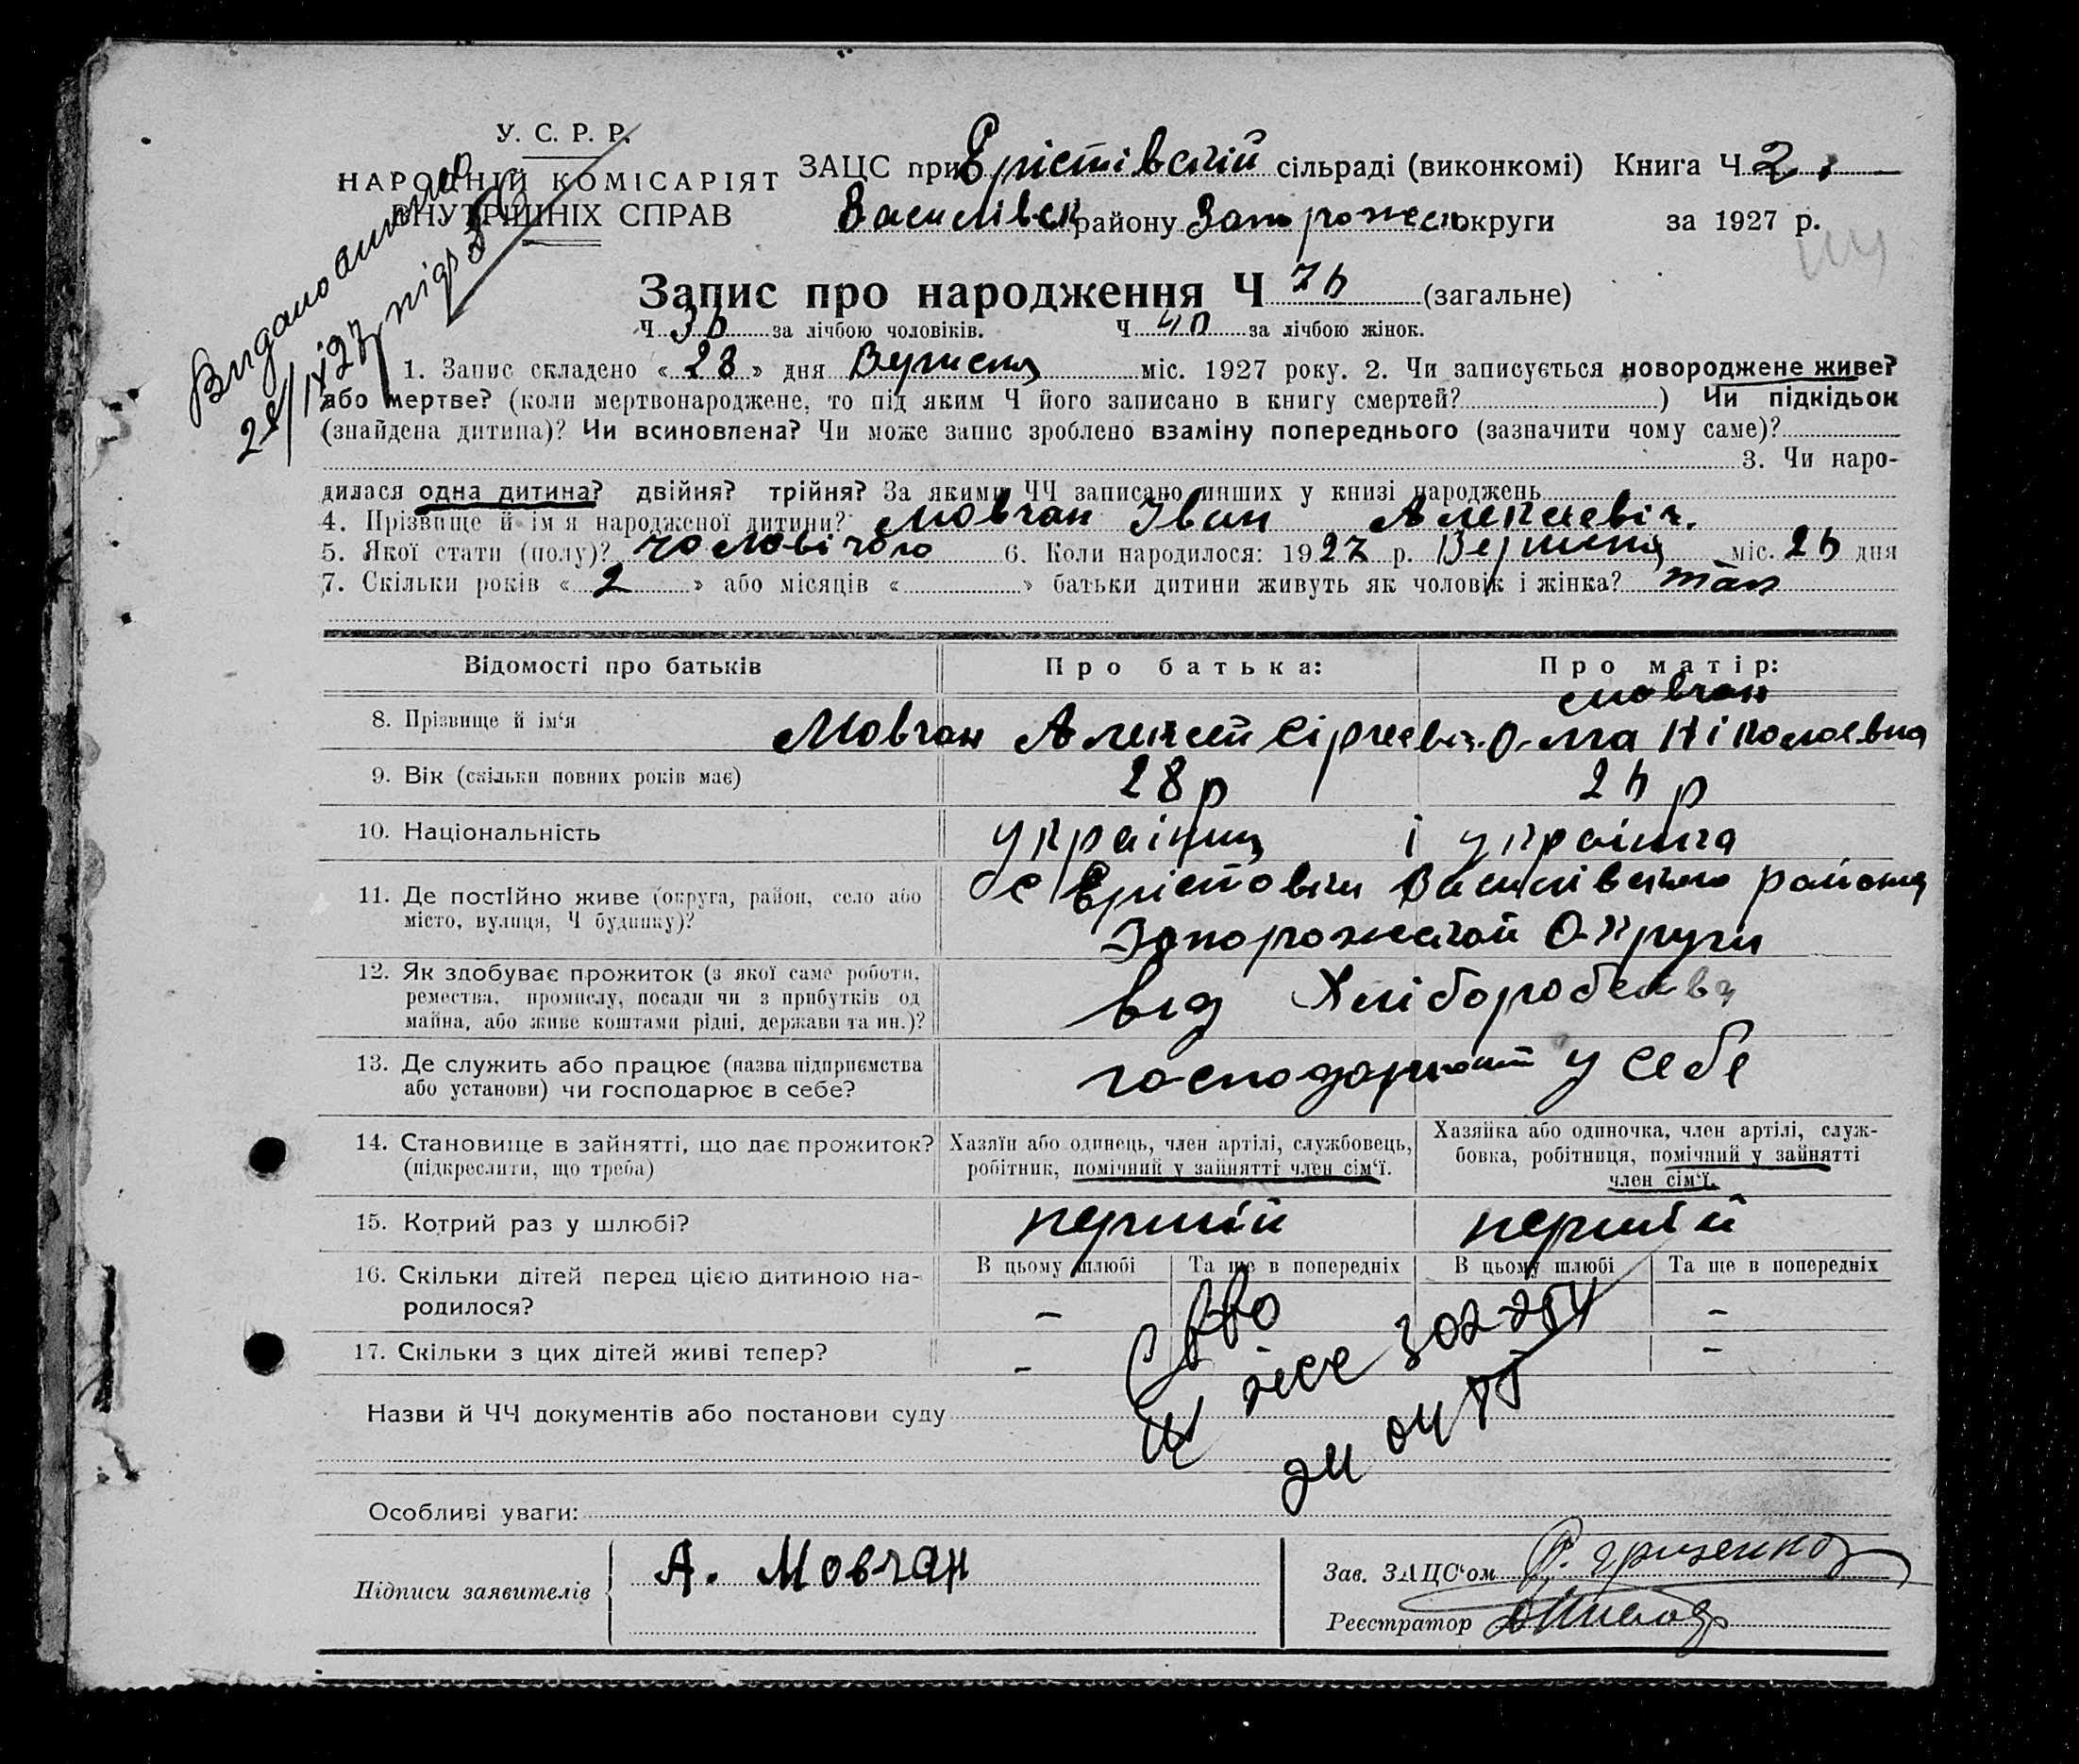 У. С. Р. Р.
НАРОДНІЙ КОМІСАРІЯТ
ВНУТРІШНІХ СПРАВ
ЗАЦС при Єрістівскій сільраді (виконкомі) Книга Ч 2
Василівськ району Запорожськ округи за 1927 р.
114
Запис про народження Ч 76 (загальне)
Ч 36 за лічбою чоловіків. Ч 40 за лічбою жінок.
1. Запис складено « 28 » дня Вересня міс. 1927 року. 2. Чи записується новороджене живе?
або мертве? (коли мертвонароджене, то під яким Ч його записано в книгу смертей? ) Чи підкідьок
(знайдена дитина)? Чи всиновлена? Чи може запис зроблено взаміну попереднього (зазначити чому саме)?
3. Чи наро-
дилася одна дитина? двійня? трійня? За якими ЧЧ записано инших у книзі народжень
4. Прізвище й ім'я народженої дитини? Мовчан Іван Алексеевіч.
5. Якої стати (полу)? чоловічого 6. Коли народилося: 1927 р. Вересня міс. 26 дня
7. Скільки років « 2 » або місяців « » батьки дитини живуть як чоловік і жінка? так
Відомості про батьків Про батька: Про матір:
Мовчан
8. Прізвище й ім'я Мовчан Алексей Сіргеевіч Ольга Ніколаевна
9. Вік (скільки повних років має) 28 р 26 р
10. Національність українец і українка
11. Де постійно живе (округа, район, село або
місто, вулиця, Ч будинку)?
с Єрістовки Василівського района
Запорожской Округи
12. Як здобуває прожиток (з якої саме роботи,
ремества, промислу, посади чи з прибутків од
майна, або живе коштами рідні, держави та ин.)?
від Хліборобства
13. Де служить або працює (назва підприємства
або установи) чи господарює в себе?
господарюют у себе
14. Становище в зайнятті, що дає прожиток?
(підкреслити, що треба)
Хазяїн або одинець, член артілі, службовець,
робітник, помічний у зайнятті член сім'ї.
Хазяйка або одиночка, член артілі, служ-
бовка, робітниця, помічний у зайнятті
член сім'ї.
15. Котрий раз у шлюбі? першій першій
16. Скільки дітей перед цією дитиною на-
родилося?
В цьому шлюбі Та ще в попередніх В цьому шлюбі Та ще в попередніх
– –
17. Скільки з цих дітей живі тепер? – –
302254
Назви й ЧЧ документів або постанови суду
Особливі уваги:
Підписи заявителів А. Мовчан
Зав. ЗАЦС'ом Гриценко
Реєстратор